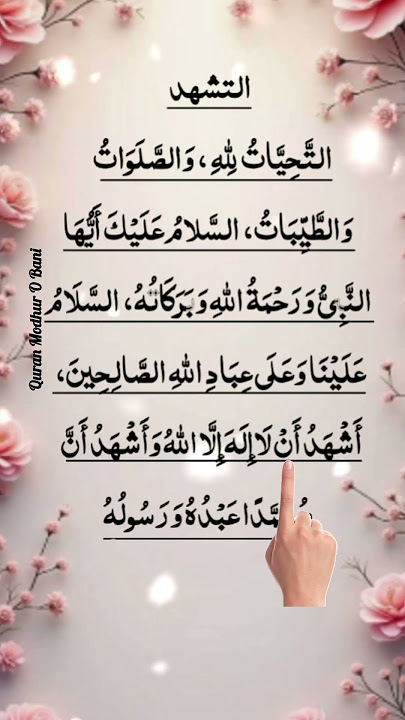 التشهد
التَّحِيَّاتُ لِلَّهِ، وَالصَّلَوَاتُ
وَالطَّيِّبَاتُ، السَّلامُ عَلَيْكَ أَيُّهَا
النَّبِيُّ وَرَحْمَةُ اللهِ وَبَرَكَاتُهُ، السَّلَامُ
عَلَيْنَا وَعَلَى عِبَادِ اللهِ الصَّالِحِينَ،
أَشْهَدُ أَنْ لَا إِلَهَ إِلَّا اللهُ وَأَشْهَدُ أَنَّ
عَبْدُهُ وَرَسُولُهُ
Quran Modhur O Bani